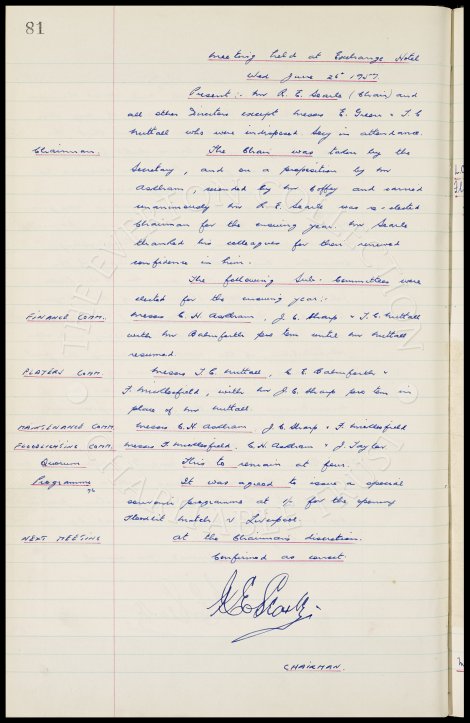 81
Meeting held at Exchange Hotel
Wed June 26th 1957.
Present:- Mr R. E. Searle (Chair) and
all other Directors except Messrs E. Green & T. C.
Nuttall who were indisposed Secy in attendance.
Chairman. The Chair was taken by the
Secretary, and on a proposition by Mr
Askham, seconded by Mr Coffey and carried
unanimously Mr R. E. Searle was re-elected
Chairman for the ensuing year. Mr Searle
thanked his colleagues for their renewed
confidence in him.
The following Sub-Committees were
elected for the ensuing year:-
FINANCE COMM. Messrs C. H. Askham, J. C. Sharp & T. C. Nuttall
with Mr Balmforth pro tem until Mr Nuttall
resumed
PLAYERS COMM. Messrs T. C. Nuttall, C. E. Balmforth &
F. Micklesfield, with Mr J. C. Sharp pro tem in
place of Mr Nuttall.
MAINTENANCE COMM. Messrs C. H. Askham, J. C. Sharp & F. Micklesfield
FLOODLIGHTING COMM. Messrs F. Micklesfield, C. H. Askham & J. Taylor
Quorum This to remain at four.
Programme It was agreed to issue a special
souvenir programme at 1/- for the opening
Floodlit match v Liverpool.
NEXT MEETING At the Chairman's discretion.
Confirmed as correct.
CHAIRMAN.